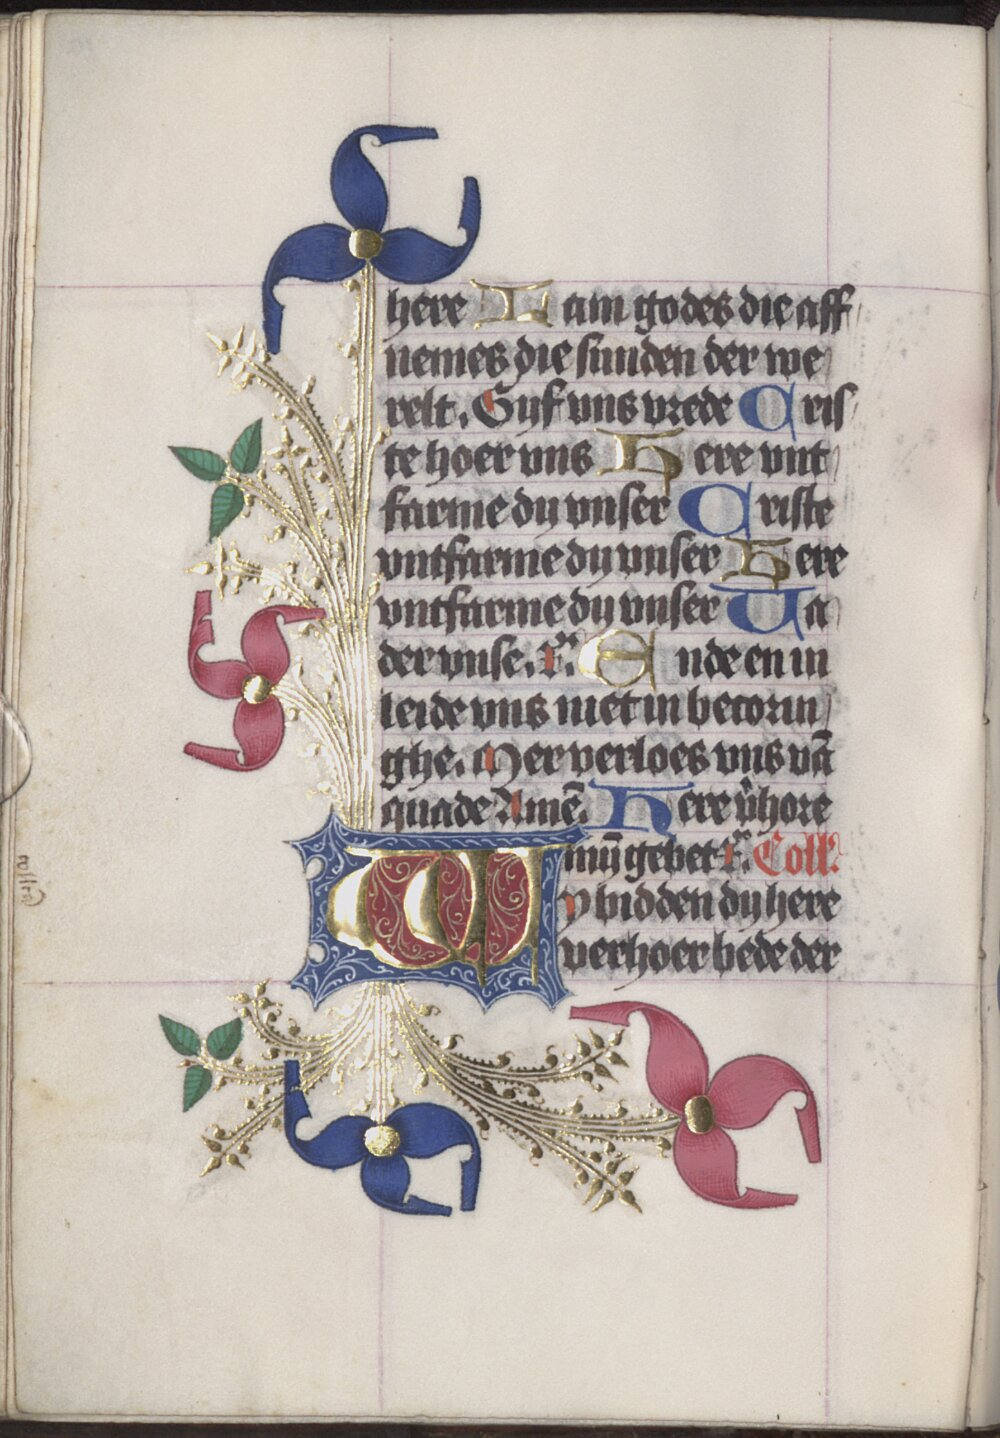 here Lam godes die aff
nemes die sunden der we
relt. Gyf vns vrede Cris
te hoer vns Here vnt
farme dy vnser Criste
vntfarme dy vnser Here
vntfarme dy vnser Va
der vnse. Ende en in
leide vns niet in becorin
ghe. Mer verloes vns vā
quade Amē. Here v̄hore
mȳ gebet Coll'
Wy bidden dy here
verhoer bede der